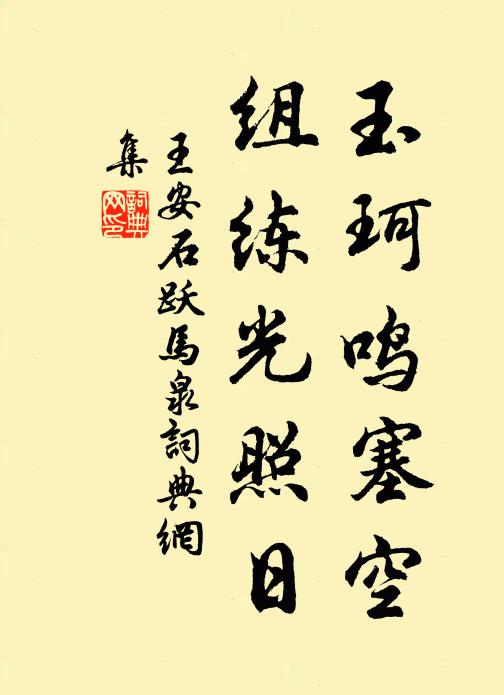 玉珂鸣塞空
组练光照日
王安石跃馬泉詞典網
集
詞典网印